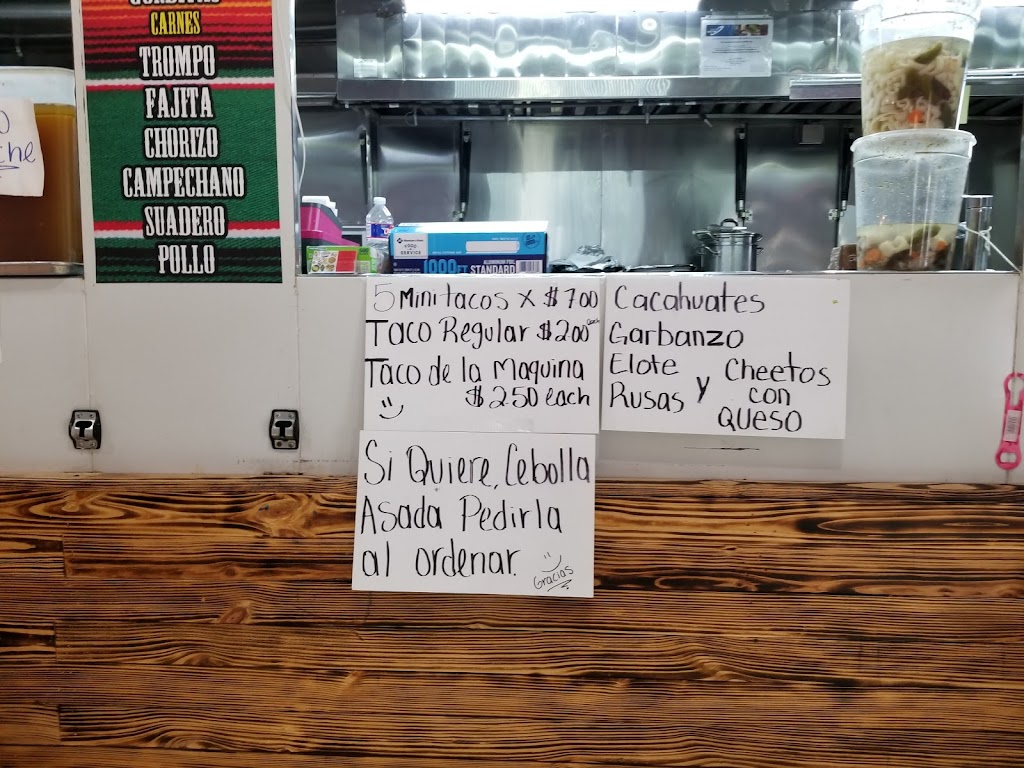 CARNES
TROMPO
FAJITA
CHORIZO
CAMPECHANO
SUADERO
POLLO
5 Mini tacos x $7.00
Taco Regular $2.00 each
Taco de la Maquina
$2.50 each
Cacahuates
Garbanzo
Elote
Rusas y Cheetos
con
queso
Si Quiere, Cebolla
Asada Pedirla
al ordenar.
Gracias
1000FT STANDARD
ALUMINUM FOIL